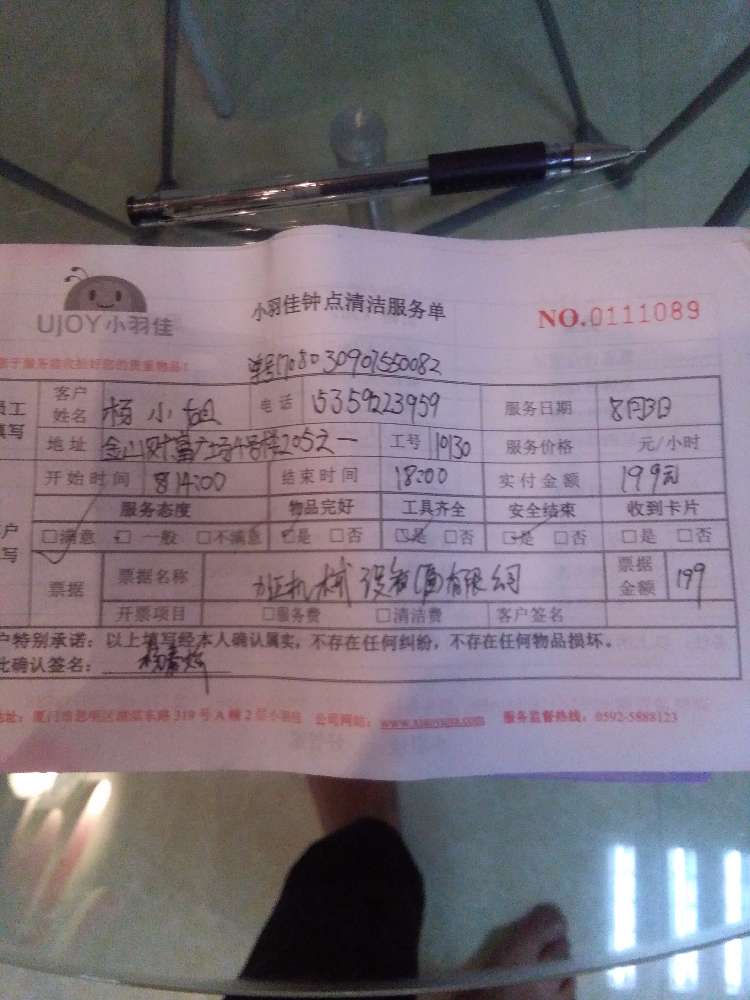 UJOY小羽佳
小羽佳钟点清洁服务单
NO.0111089
单号1708030907550082
客户姓名 杨小姐 电话 15359223959 服务日期 8月3日
地址 金山财富广场4号楼205之一 工号 10130 服务价格 元/小时
开始时间 8 14:00 结束时间 18:00 实付金额 199元
服务态度 物品完好 工具齐全 安全结束 收到卡片
□满意 □一般 □不满意 □是 □否 □是 □否 □是 □否 □是 □否
票据 票据名称 机械设备 有限公司 票据金额 199
开票项目 □服务费 □清洁费 客户签名
户特别承诺：以上填写经本人确认属实，不存在任何纠纷，不存在任何物品损坏。
此确认签名：杨春
地址：厦门市思明区 东路319号A幢2层小羽佳 公司网站：www.xiaoyujia.com 服务监督热线：0592-5888123